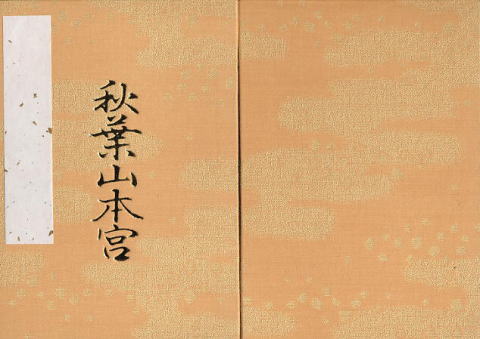 秋葉山本宮